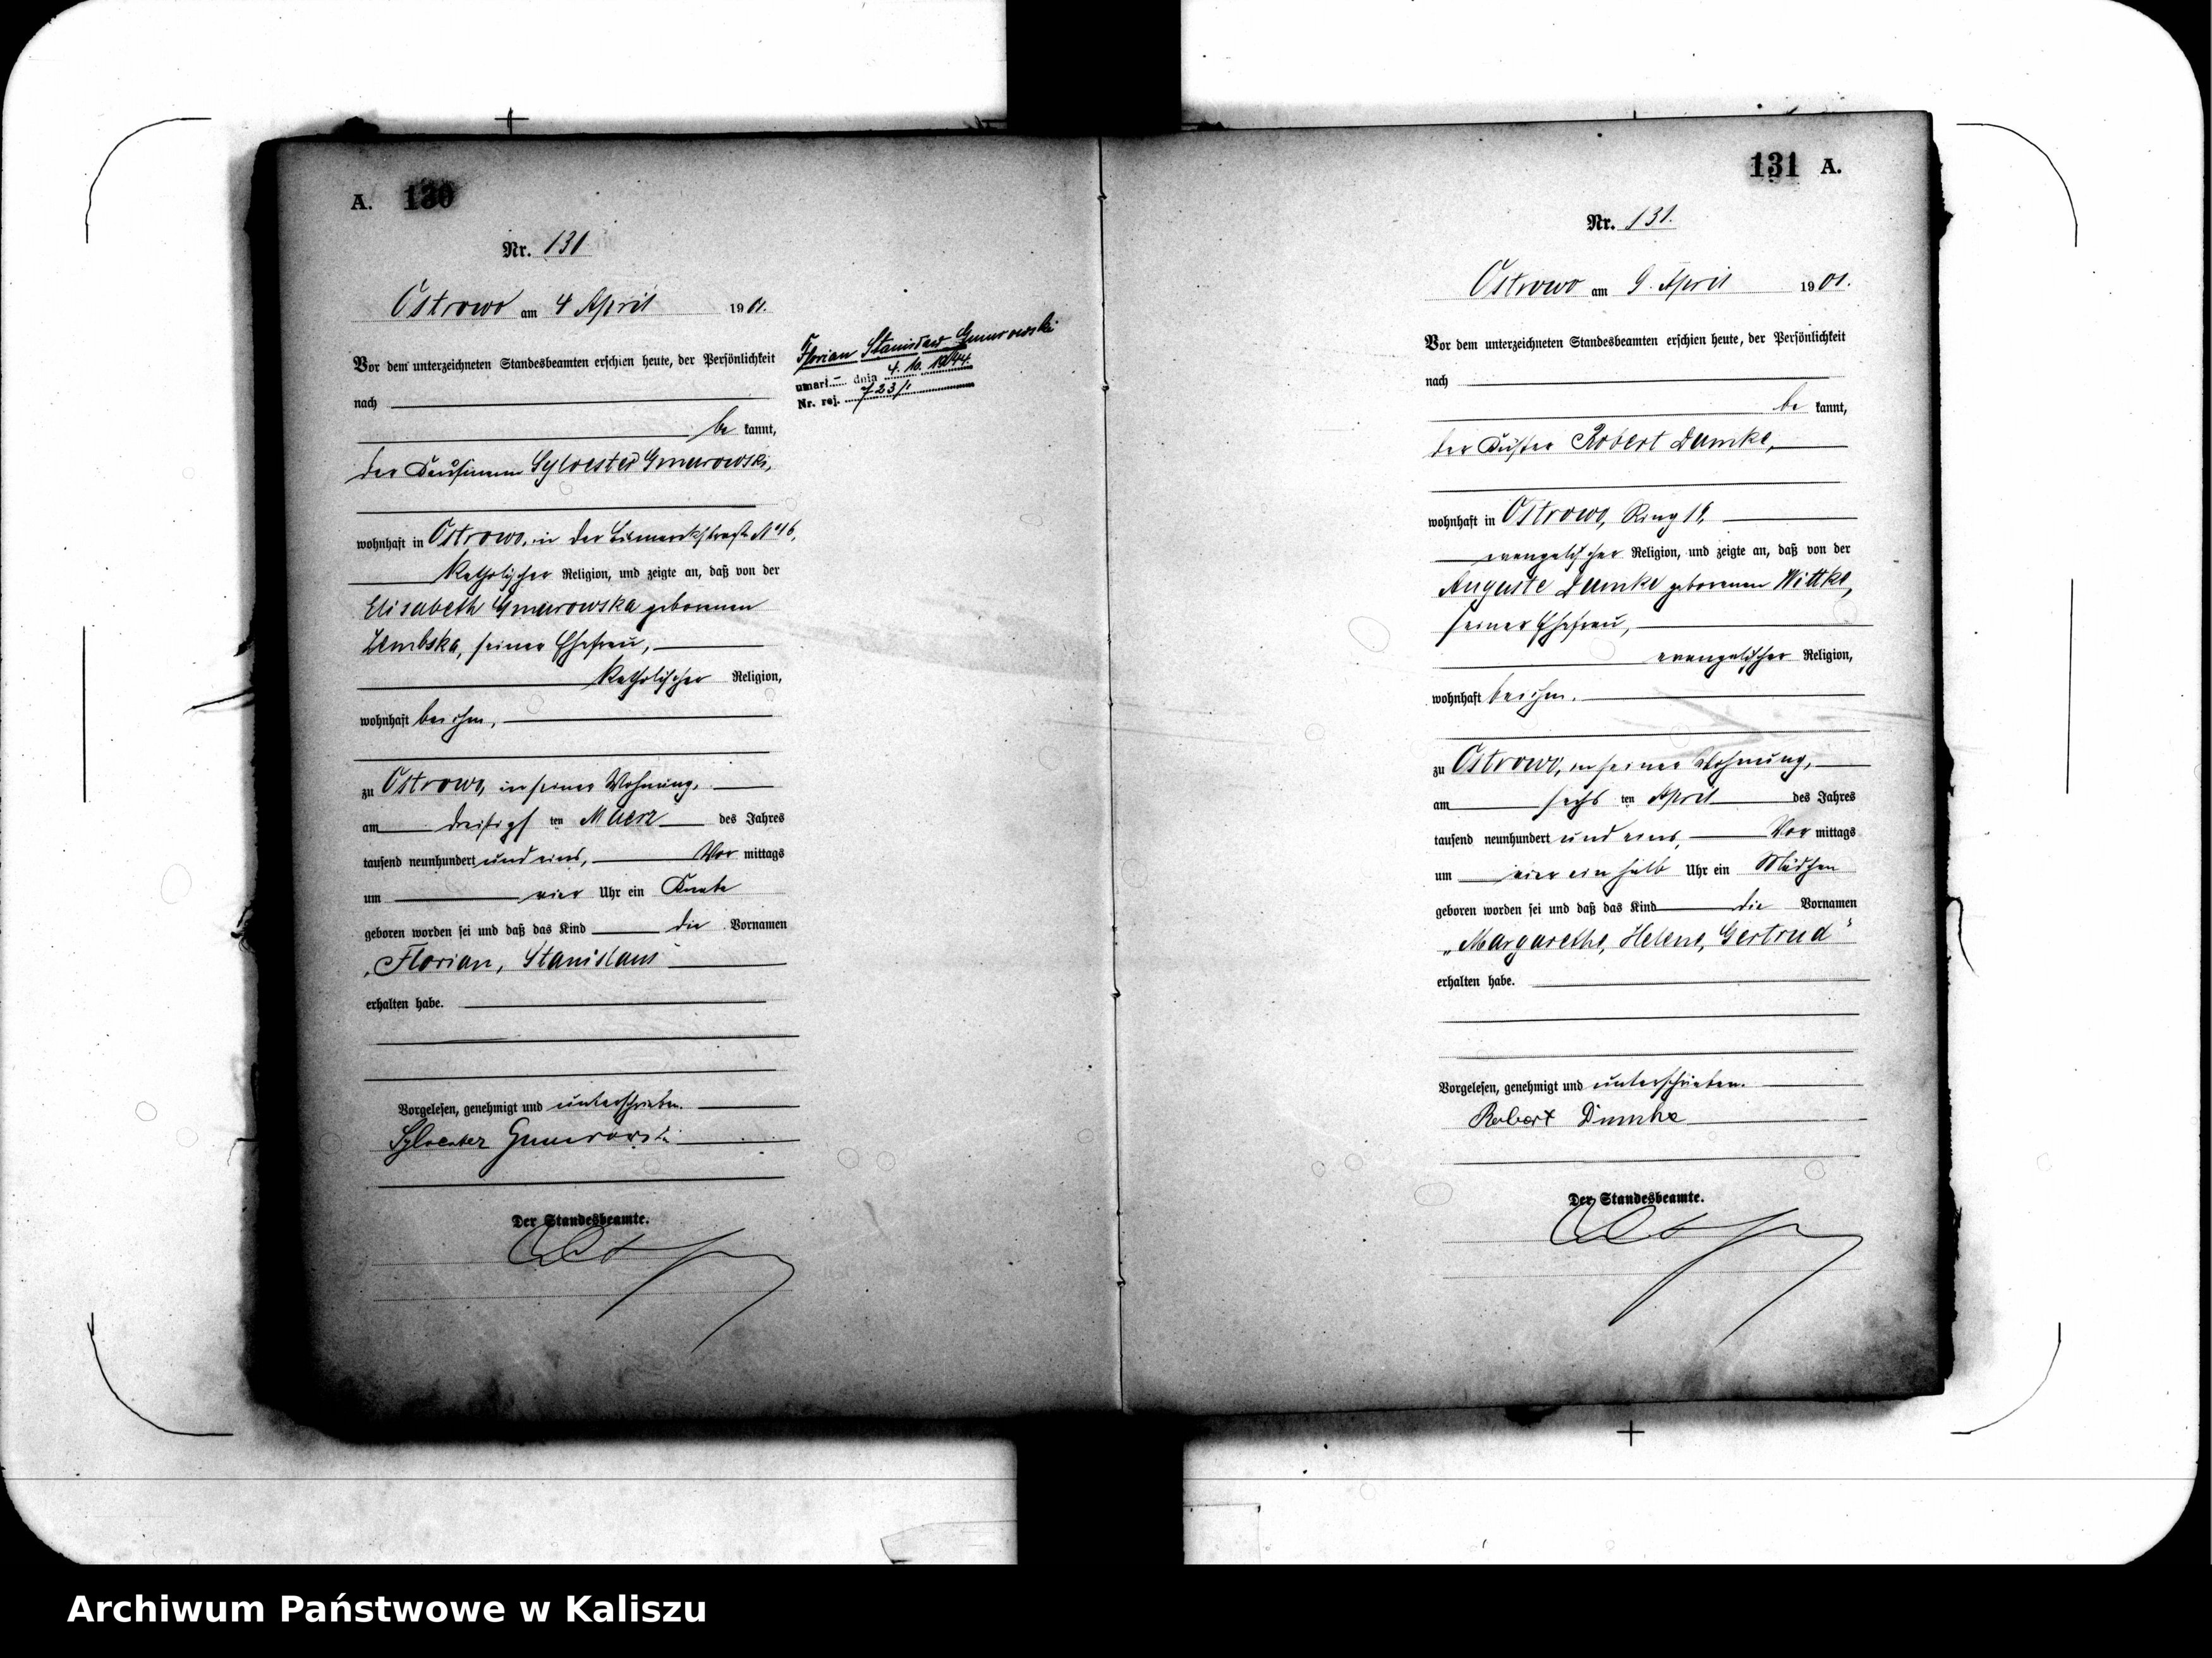 A. 130
Nr. 130
Ostrowo am 4 April 1901.
Vor dem unterzeichneten Standesbeamten erschien heute, der Persönlichkeit
nach
be kannt,
der Kaufmann Sylvester Gmurowski,
wohnhaft in Ostrowo, in der Bismarckstraße No 16,
katholischer Religion, und zeigte an, daß von der
Elisabeth Gmurowska geborenen
Zembska, seiner Ehefrau,
katholischer Religion,
wohnhaft bei ihm,
zu Ostrowo, in seiner Wohnung,
am dreißigs ten Maerz des Jahres
tausend neunhundert und eins, Vor mittags
um vier Uhr ein Knabe
geboren worden sei und daß das Kind die Vornamen
„Florian, Stanislaus“
erhalten habe.
Vorgelesen, genehmigt und unterschrieben.
Sylvester Gmurowski
Der Standesbeamte.
Florian Stanisław Gmurowski
umarł dnia 4. 10. 1944.
Nr. rej. 723/
131 A.
Nr. 131.
Ostrowo am 9. April 1901.
Vor dem unterzeichneten Standesbeamten erschien heute, der Persönlichkeit
nach
be kannt,
der Küster Robert Dumke,
wohnhaft in Ostrowo, Ring 19,
evangelischer Religion, und zeigte an, daß von der
Auguste Dumke geborenen Wittke,
seiner Ehefrau,
evangelischer Religion,
wohnhaft bei ihm,
zu Ostrowo, in seiner Wohnung,
am sechs ten April des Jahres
tausend neunhundert und eins, Vor mittags
um vier ein halb Uhr ein Mädchen
geboren worden sei und daß das Kind die Vornamen
„Margarethe, Helene, Gertrud“
erhalten habe.
Vorgelesen, genehmigt und unterschrieben.
Robert Dumke
Der Standesbeamte.
Archiwum Państwowe w Kaliszu